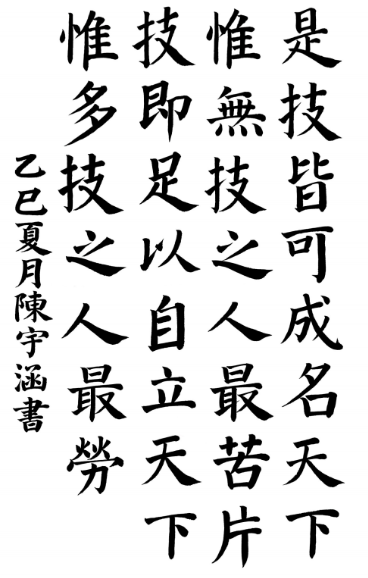 是技皆可成名天下
惟無技之人最苦片
技即足以自立天下
惟多技之人最勞
乙巳夏月陳宇涵書